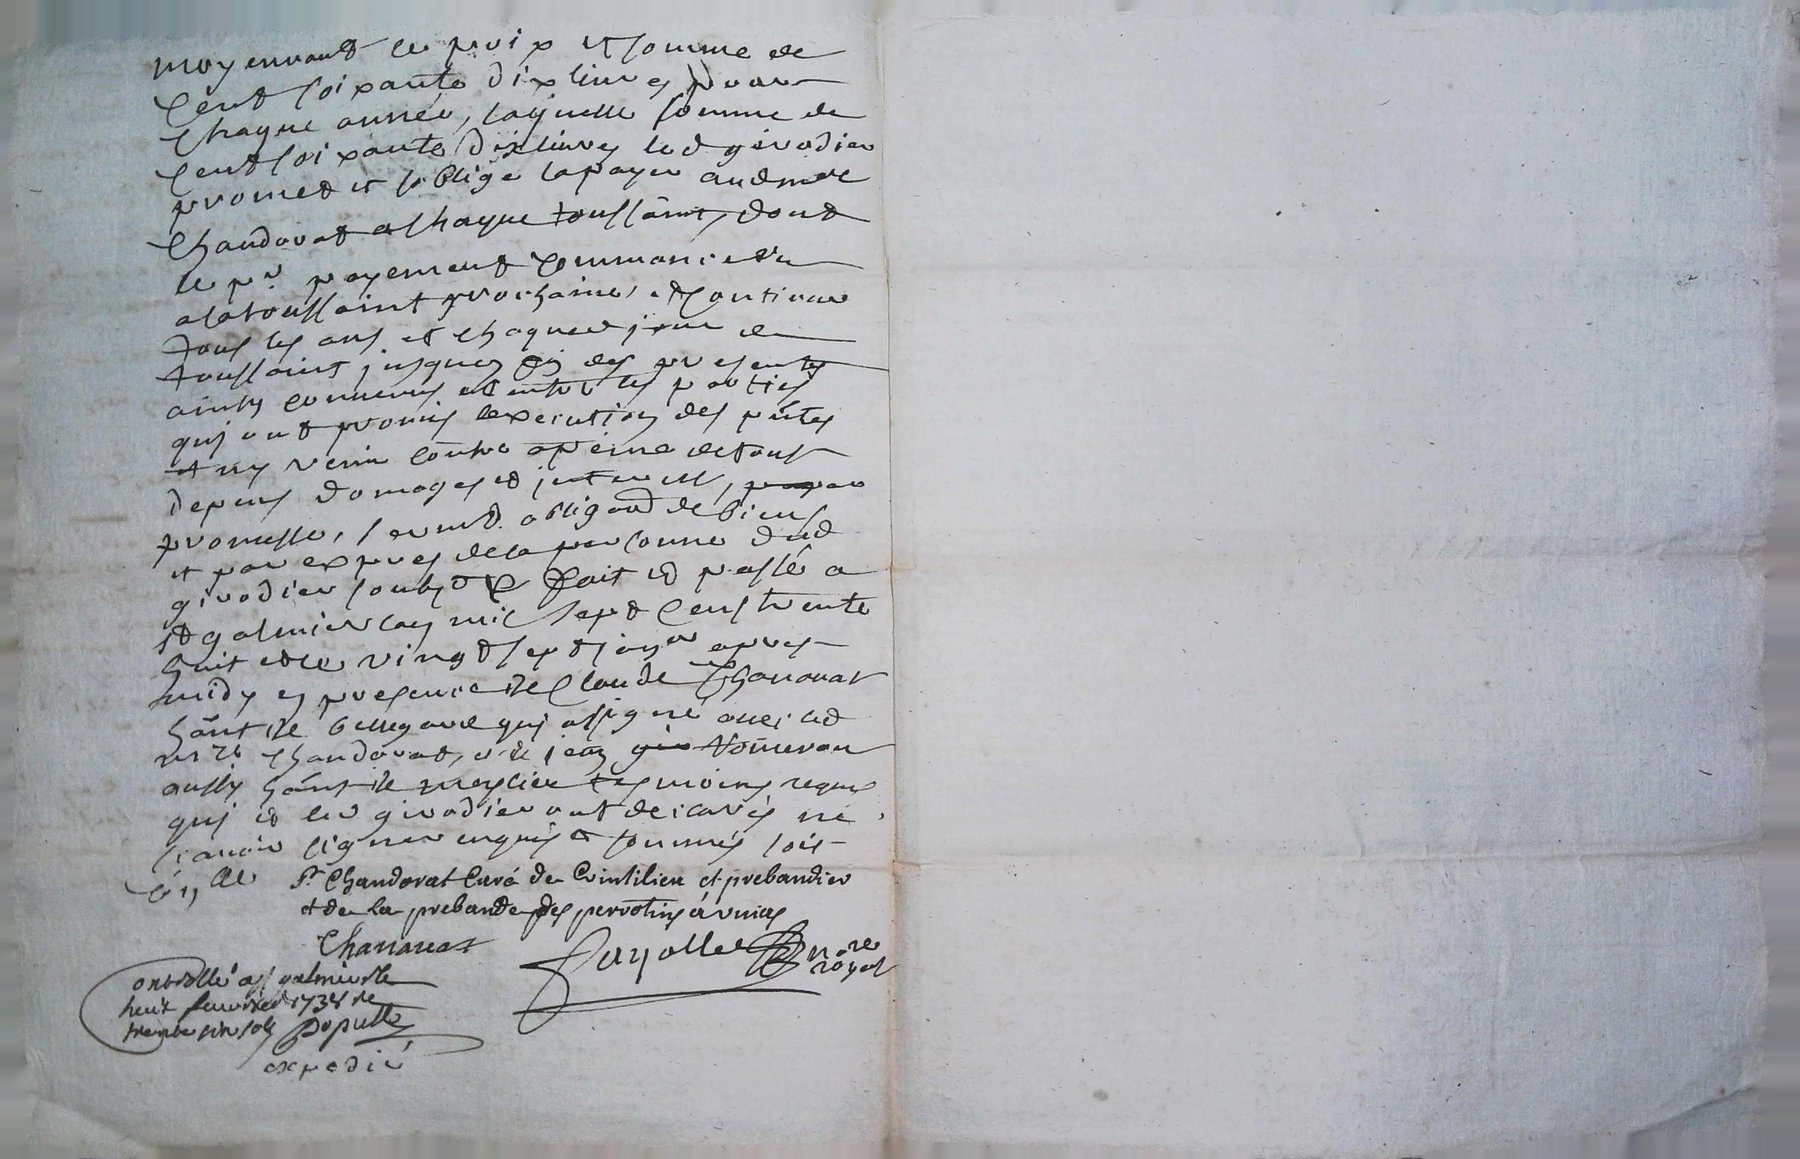 moyennant le prix et somme de
cent soixante dix livres pour
chaque année, laquelle somme de
cent soixante dix livres led girodier
promet et soblige la payer aud mre
Chandorat a chaque toussaint, dont
le pr payement commancera
a la toussaint prochaine, et continuer
tous les ans et chaque jour de
toussaint jusques fin des presentes
ainsy convenu est entre les parties
qui ont promis lexecution des pntes
et ny venir contre a peine de tous
depens domages et interest, par
promesse, serment obligaon de biens
et par expres de la personne dud
girodier soubs &c fait et passé a
st galmier lan mil sept cens trente
huit et le vingt sept janer apres
midy en presence de Claude Chanauat
hant de bellegarde qui a signé avec led
mre Chandorat, et de jean
aussy hant de tesmoins requis
qui et led girodier ont declarés ne
scavoir signer enquis et sommés sois
Pr Chandorat Curé de Cuintilieu et prebandier
et de la prebande des perrotins a
Chanauat
Fayolle nore
royal
Controllé a st galmier le
huit fevrier 1738 Re
sols Dopulle
expedié